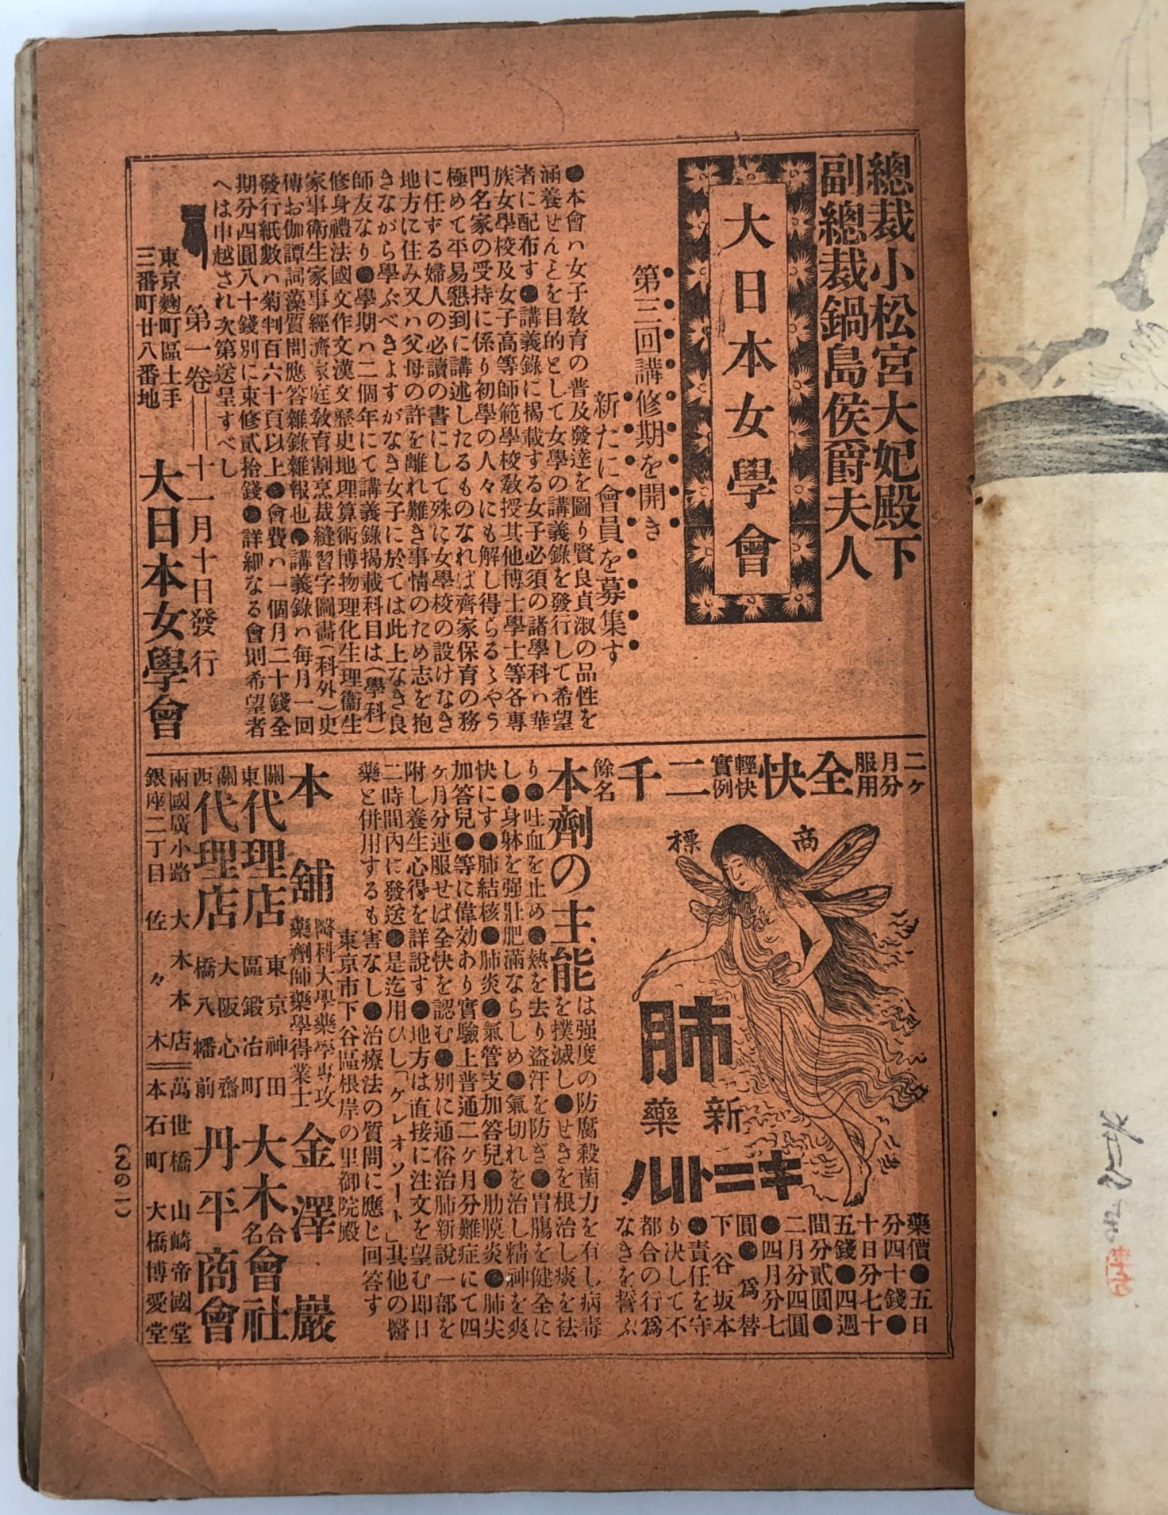 總裁小松宮大妃殿下
副總裁鍋島侯爵夫人
大日本女學會
第三回講修期を開き
新たに會員を募集す
●本會ハ女子敎育の普及發達を圖り賢良貞淑の品性を
涵養せんとを目的として女學の講義錄を發行して希望
者に配布す●講義錄に揭載する女子必須の諸學科ハ華
族女學校及女子高等師範學校敎授其他博士學士等各專
門名家の受持に係り初學の人々にも解し得らるゝやう
極めて平易懇到に講述したるものなれば齊家保育の務
に任ずる婦人の必讀の書にして殊に女學校の設けなき
地方に住み又ハ父母の許を離れ難き事情のため志を抱
きながら學ぶべきよすがなき女子に於ては此上なき良
師友なり●學期ハ二個年にて講義錄揭載科目は(學科)
修身禮法國文作文漢文歷史地理算術博物理化生理衞生
家事衛生家事經濟家庭敎育割烹裁縫習字圖畵(科外)史
傳お伽譚詞藻質問應答雜錄雜報也●講義錄ハ每月一回
發行紙數ハ菊判百六十頁以上●會費ハ一個月二十錢全
期分四圓八十錢別に束修貳拾錢●詳細なる會則希望者
へは申越され次第送呈すべし
第一卷——十一月十日發行
東京麴町區土手
三番町廿八番地
大日本女學會
二ヶ
月分
服用
全快
輕快
實例
二千
餘名
商標
肺
新藥
キニトルル
藥價●五日
分四十錢●
十日分七十
五錢●四週
間分貳圓●
二月分四圓
●四月分七
圓●爲替
下谷坂本
●責任を守
り決して不
都合の行爲
なきを誓ふ
本劑の主能は强度の防腐殺菌力を有し病毒
を撲滅し●せきを根治し痰を祛
り●吐血を止め●熱を去り盗汗を防ぎ●胃腸を健全に
し●身躰を强壯肥滿ならしめ●氣切れを治し精神を爽
快にす●肺結核●肺炎●氣管支加答兒●肋膜炎●肺尖
加答兒●等に偉効あり實驗上普通二ヶ月分難症にて四
ヶ月分連服せば全快を認む●別に通俗治肺新說一部を
附し養生心得を詳說す●地方は直接に注文を望む即日
二時間內に發送●是迄用ひし「ケレオソート」其他の醫
藥と併用するも害なし●治療法の質問に應じ回答す
東京市下谷區根岸の里御院殿
本舖
醫科大學藥學専攻
藥劑師藥學得業士
金澤巖
關東代理店 東京神田區鍛冶町 大木合名會社
關西代理店 大阪心齋橋八幡前 丹平商會
兩國廣小路 大木本店=萬世橋 山崎帝國堂
銀座二丁目 佐々木=本石町 大橋博愛堂
(乙の一)